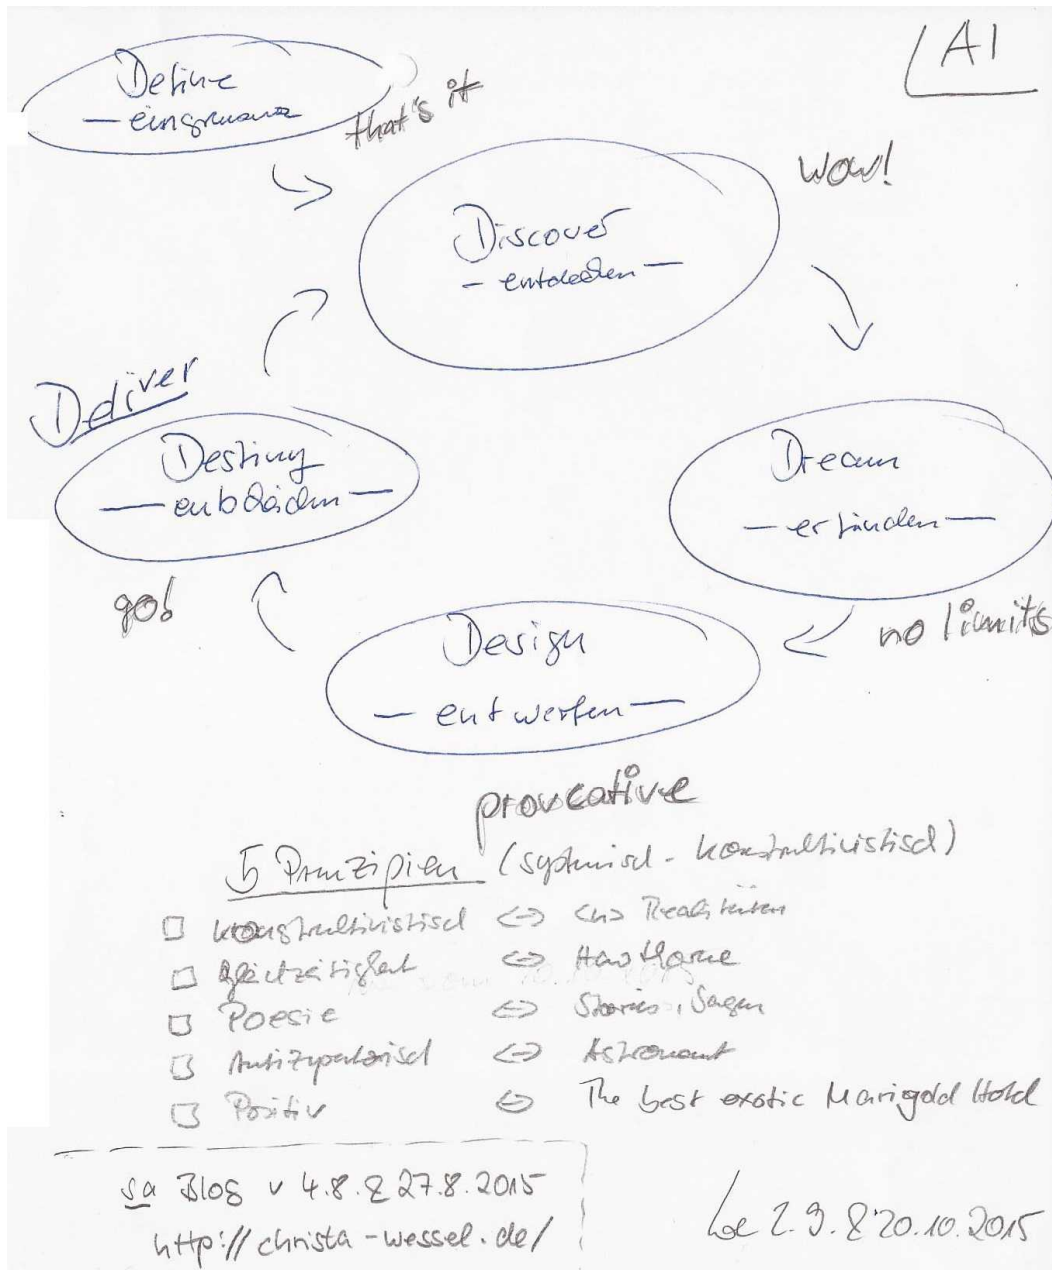 AI
Define
— eingrenzen
that's it
Discover
- entdecken —
wow!
Deliver
Destiny
— entwickeln —
go!
Dream
— erfinden —
no limits
Design
— entwerfen —
provocative
5 Prinzipien (systemisch - konstruktivistisch)
□ konstruktivistisch <-> <n> Realitäten
□ Gleichzeitigkeit <-> Hawthorne
□ Poesie <-> Stories, Sagen
□ Antizipatorisch <-> Astronaut
□ Positiv <-> The best exotic Marigold Hotel
sa Blog v 4.8. & 27.8.2015
http://christa-wessel.de/
2.9. & 20.10.2015